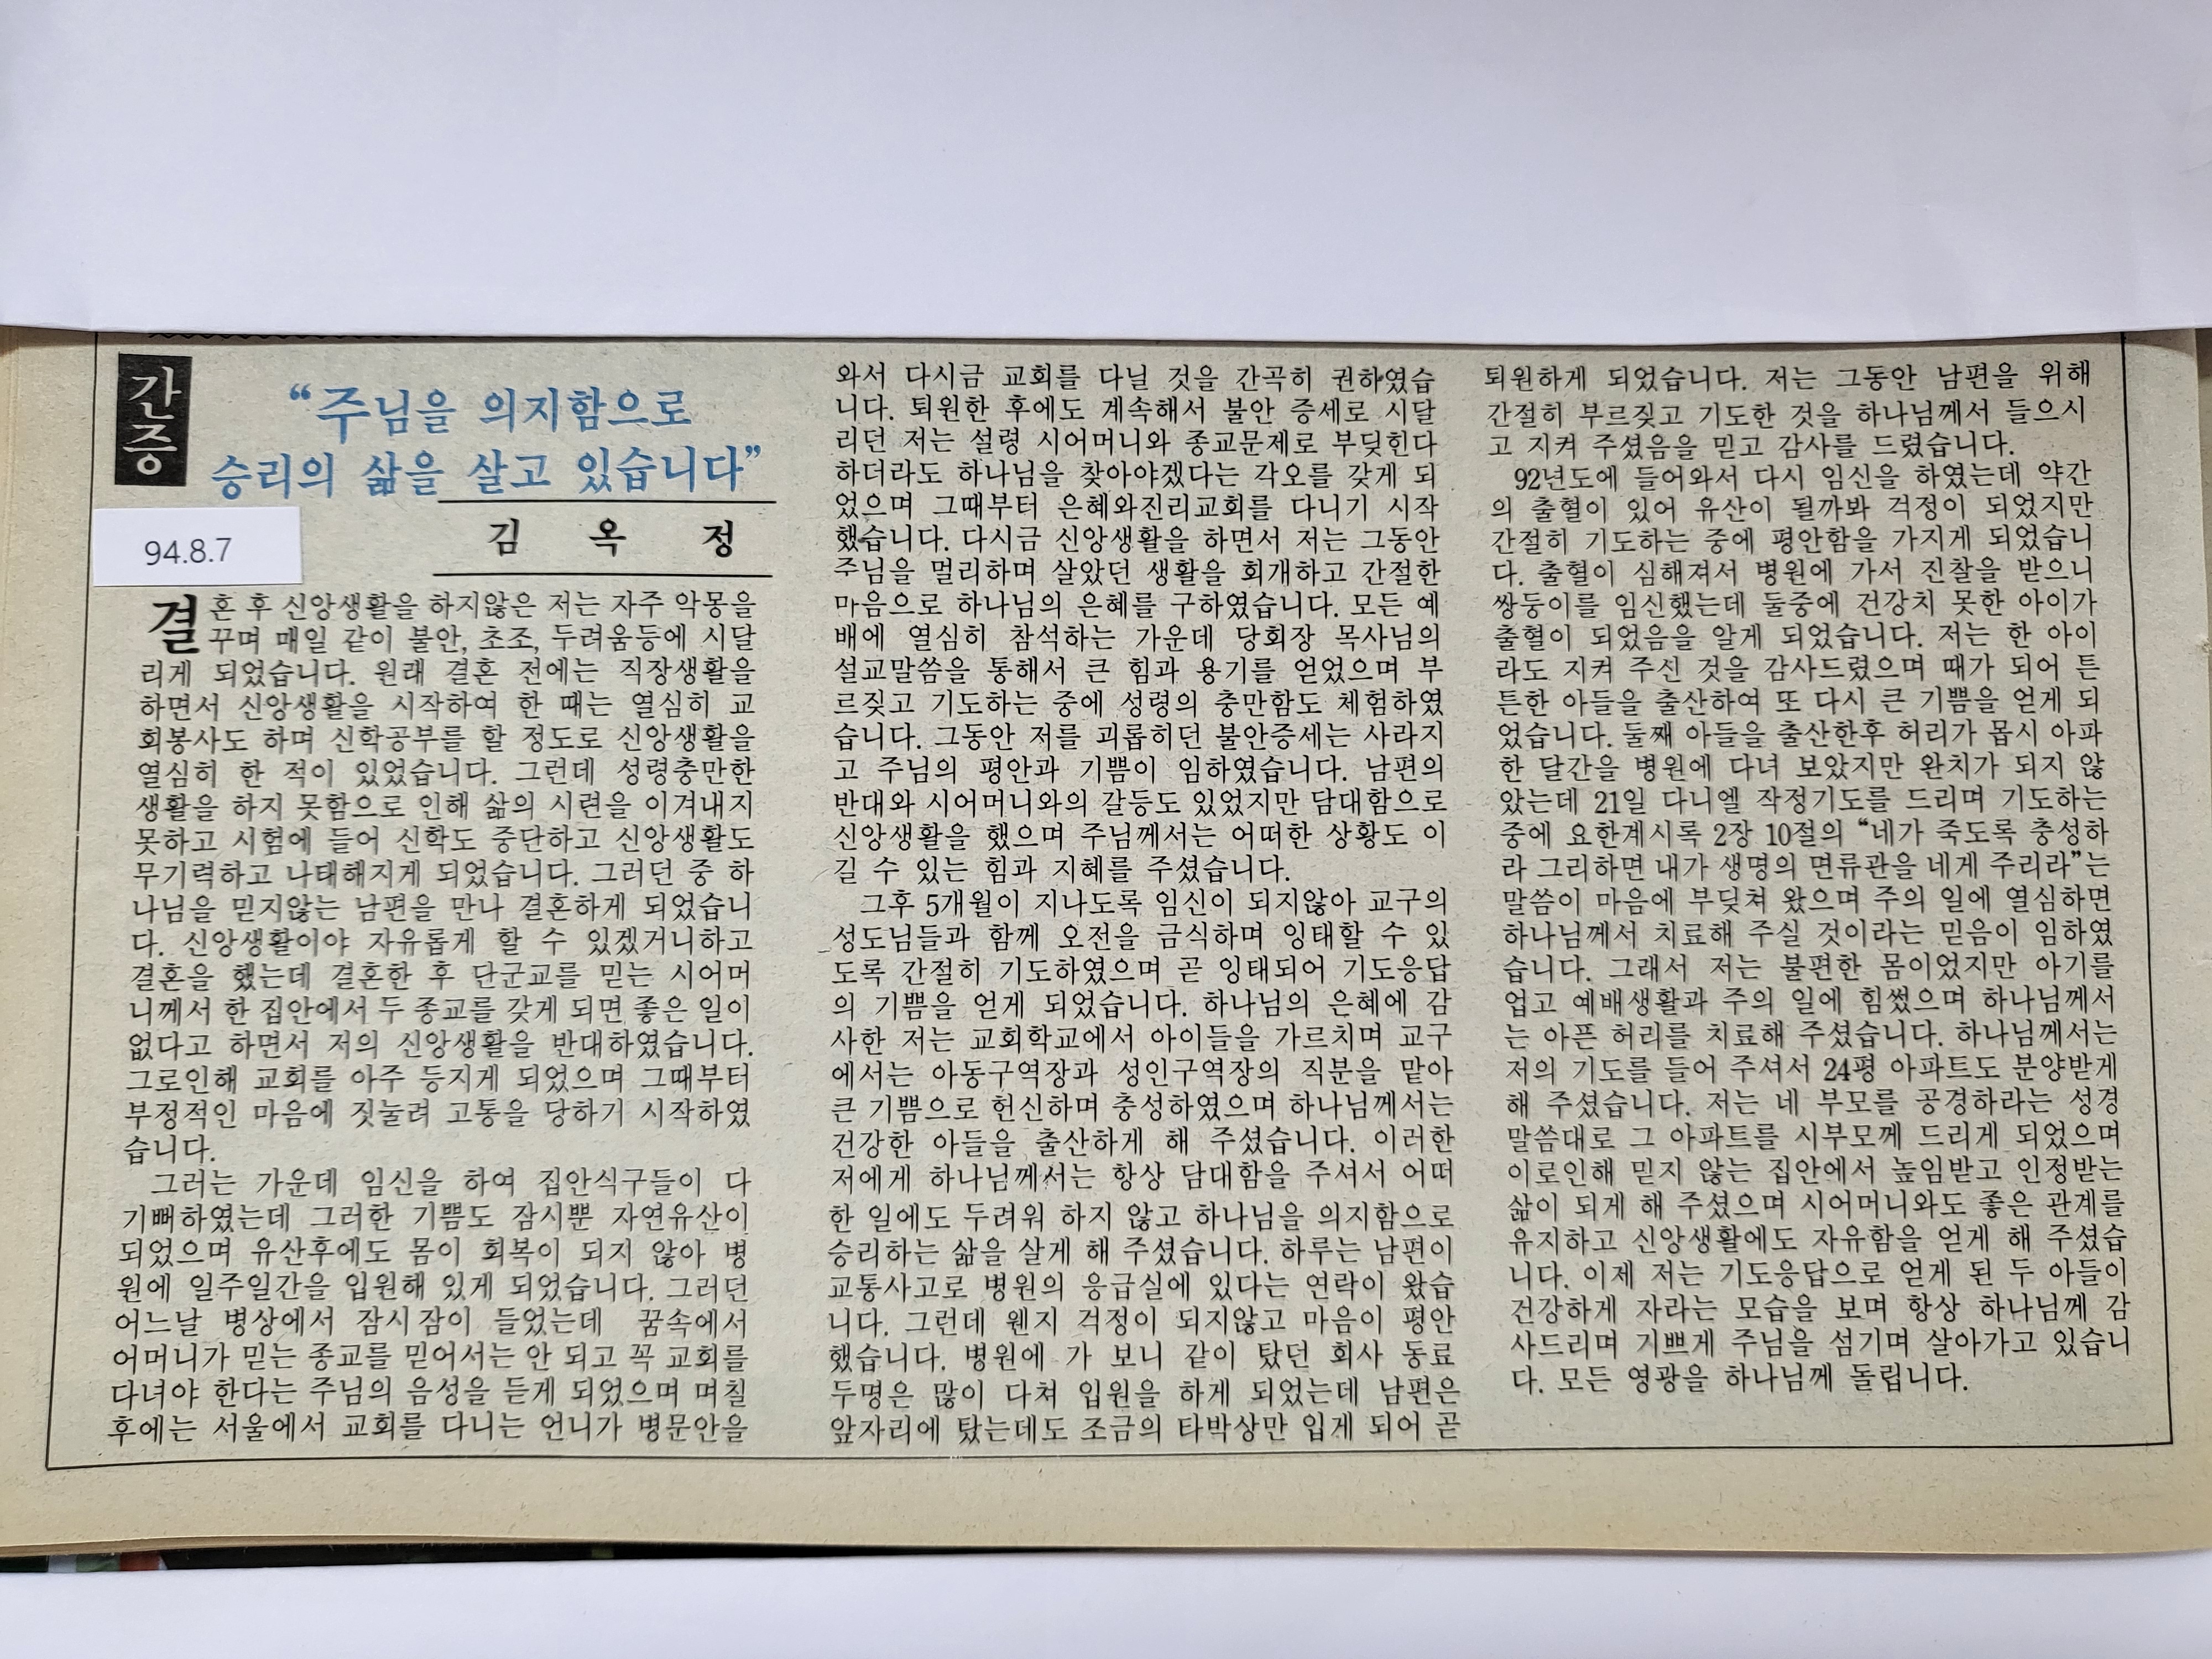 간증
“주님을 의지함으로
승리의 삶을 살고 있습니다”
김 옥 정
94.8.7
결혼 후 신앙생활을 하지않은 저는 자주 악몽을
꾸며 매일 같이 불안, 초조, 두려움등에 시달
리게 되었습니다. 원래 결혼 전에는 직장생활을
하면서 신앙생활을 시작하여 한 때는 열심히 교
회봉사도 하며 신학공부를 할 정도로 신앙생활을
열심히 한 적이 있었습니다. 그런데 성령충만한
생활을 하지 못함으로 인해 삶의 시련을 이겨내지
못하고 시험에 들어 신학도 중단하고 신앙생활도
무기력하고 나태해지게 되었습니다. 그러던 중 하
나님을 믿지않는 남편을 만나 결혼하게 되었습니
다. 신앙생활이야 자유롭게 할 수 있겠거니하고
결혼을 했는데 결혼한 후 단군교를 믿는 시어머
니께서 한 집안에서 두 종교를 갖게 되면 좋은 일이
없다고 하면서 저의 신앙생활을 반대하였습니다.
그로인해 교회를 아주 등지게 되었으며 그때부터
부정적인 마음에 짓눌려 고통을 당하기 시작하였
습니다.
그러는 가운데 임신을 하여 집안식구들이 다
기뻐하였는데 그러한 기쁨도 잠시뿐 자연유산이
되었으며 유산후에도 몸이 회복이 되지 않아 병
원에 일주일간을 입원해 있게 되었습니다. 그러던
어느날 병상에서 잠시 잠이 들었는데 꿈속에서
어머니가 믿는 종교를 믿어서는 안 되고 꼭 교회를
다녀야 한다는 주님의 음성을 듣게 되었으며 며칠
후에는 서울에서 교회를 다니는 언니가 병문안을
와서 다시금 교회를 다닐 것을 간곡히 권하였습
니다. 퇴원한 후에도 계속해서 불안 증세로 시달
리던 저는 설령 시어머니와 종교문제로 부딪힌다
하더라도 하나님을 찾아야겠다는 각오를 갖게 되
었으며 그때부터 은혜와진리교회를 다니기 시작
했습니다. 다시금 신앙생활을 하면서 저는 그동안
주님을 멀리하며 살았던 생활을 회개하고 간절한
마음으로 하나님의 은혜를 구하였습니다. 모든 예
배에 열심히 참석하는 가운데 당회장 목사님의
설교말씀을 통해서 큰 힘과 용기를 얻었으며 부
르짖고 기도하는 중에 성령의 충만함도 체험하였
습니다. 그동안 저를 괴롭히던 불안증세는 사라지
고 주님의 평안과 기쁨이 임하였습니다. 남편의
반대와 시어머니와의 갈등도 있었지만 담대함으로
신앙생활을 했으며 주님께서는 어떠한 상황도 이
길 수 있는 힘과 지혜를 주셨습니다.
그후 5개월이 지나도록 임신이 되지않아 교구의
성도님들과 함께 오전을 금식하며 잉태할 수 있
도록 간절히 기도하였으며 곧 잉태되어 기도응답
의 기쁨을 얻게 되었습니다. 하나님의 은혜에 감
사한 저는 교회학교에서 아이들을 가르치며 교구
에서는 아동구역장과 성인구역장의 직분을 맡아
큰 기쁨으로 헌신하며 충성하였으며 하나님께서는
건강한 아들을 출산하게 해 주셨습니다. 이러한
저에게 하나님께서는 항상 담대함을 주셔서 어떠
한 일에도 두려워 하지 않고 하나님을 의지함으로
승리하는 삶을 살게 해 주셨습니다. 하루는 남편이
교통사고로 병원의 응급실에 있다는 연락이 왔습
니다. 그런데 웬지 걱정이 되지않고 마음이 평안
했습니다. 병원에 가 보니 같이 탔던 회사 동료
두명은 많이 다쳐 입원을 하게 되었는데 남편은
앞자리에 탔는데도 조금의 타박상만 입게 되어 곧
퇴원하게 되었습니다. 저는 그동안 남편을 위해
간절히 부르짖고 기도한 것을 하나님께서 들으시
고 지켜 주셨음을 믿고 감사를 드렸습니다.
92년도에 들어와서 다시 임신을 하였는데 약간
의 출혈이 있어 유산이 될까봐 걱정이 되었지만
간절히 기도하는 중에 평안함을 가지게 되었습니
다. 출혈이 심해져서 병원에 가서 진찰을 받으니
쌍둥이를 임신했는데 둘중에 건강치 못한 아이가
출혈이 되었음을 알게 되었습니다. 저는 한 아이
라도 지켜 주신 것을 감사드렸으며 때가 되어 튼
튼한 아들을 출산하여 또 다시 큰 기쁨을 얻게 되
었습니다. 둘째 아들을 출산한후 허리가 몹시 아파
한 달간을 병원에 다녀 보았지만 완치가 되지 않
았는데 21일 다니엘 작정기도를 드리며 기도하는
중에 요한계시록 2장 10절의 “네가 죽도록 충성하
라 그리하면 내가 생명의 면류관을 네게 주리라”는
말씀이 마음에 부딪쳐 왔으며 주의 일에 열심하면
하나님께서 치료해 주실 것이라는 믿음이 임하였
습니다. 그래서 저는 불편한 몸이었지만 아기를
업고 예배생활과 주의 일에 힘썼으며 하나님께서
는 아픈 허리를 치료해 주셨습니다. 하나님께서는
저의 기도를 들어 주셔서 24평 아파트도 분양받게
해 주셨습니다. 저는 네 부모를 공경하라는 성경
말씀대로 그 아파트를 시부모께 드리게 되었으며
이로인해 믿지 않는 집안에서 높임받고 인정받는
삶이 되게 해 주셨으며 시어머니와도 좋은 관계를
유지하고 신앙생활에도 자유함을 얻게 해 주셨습
니다. 이제 저는 기도응답으로 얻게 된 두 아들이
건강하게 자라는 모습을 보며 항상 하나님께 감
사드리며 기쁘게 주님을 섬기며 살아가고 있습니
다. 모든 영광을 하나님께 돌립니다.